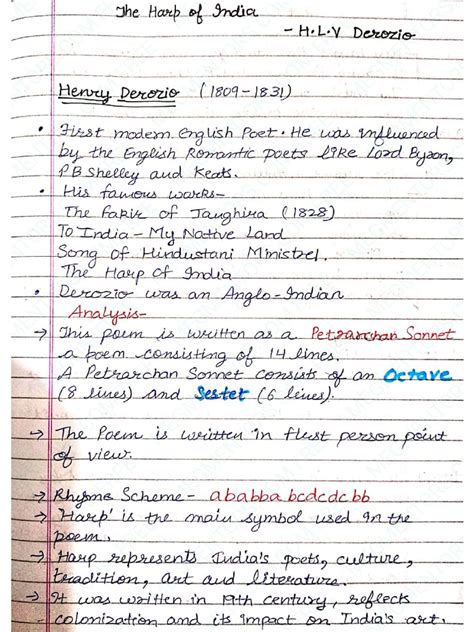 The Harp of India
- H.L.V Derozio
Henry Derozio (1809-1831)
• First modern English Poet. He was influenced
by the English Romantic poets like Lord Byron,
P.B Shelley and Keats.
• His famous works-
The Fakir of Jaughira (1828)
To India - My Native Land
Song of Hindustani Ministrel.
The Harp of India
• Derozio was an Anglo-Indian
Analysis-
→ This poem is written as a Petrarchan Sonnet
a poem consisting of 14 lines.
A Petrarchan Sonnet consists of an Octave
(8 lines) and Sestet (6 lines).
→ The Poem is written in first person point
of view.
→ Rhyme Scheme - ababba bcdcdc bb
→ 'Harp' is the main symbol used in the
poem.
→ Harp represents India's poets, culture,
tradition, art and literature.
→ It was written in 19th century, reflects
colonization and its impact on India's art.